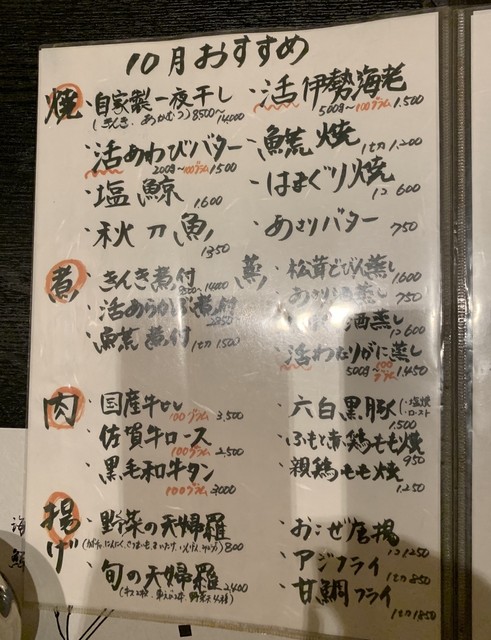 10月おすすめ
焼
・自家製一夜干し
(きんき、あかむつ) 8500〜14000
・活あわびバター
200g〜100グラム 1500
・塩鯨 1,600
・秋刀魚 1350
・活伊勢海老
500g〜100グラム 1,500
・魚荒焼 1切 1,200
・はまぐり焼 1コ 600
・あさりバター 750
煮
・きんき煮付
・活あらかぶ煮付
・魚荒煮付 1切 1500
蒸
・松茸どびん蒸し 1600
・あさり酒蒸し 750
酒蒸し 1コ600
・活わたりがに蒸し
500g〜100グラム 1,450
肉
・国産牛ヒレ
100グラム 3,500
・佐賀牛ロース
100グラム 2,500
・黒毛和牛タン
100グラム 3000
・六白黒豚(・塩焼・ロースト
1,500
・ふもと赤鶏もも焼 950
・親鶏もも焼 1,250
揚げ
・野菜の天婦羅 800
・旬の天婦羅 2,400
・おこぜ唐揚 1コ1250
・アジフライ 1切 850
・甘鯛フライ 1切 1850